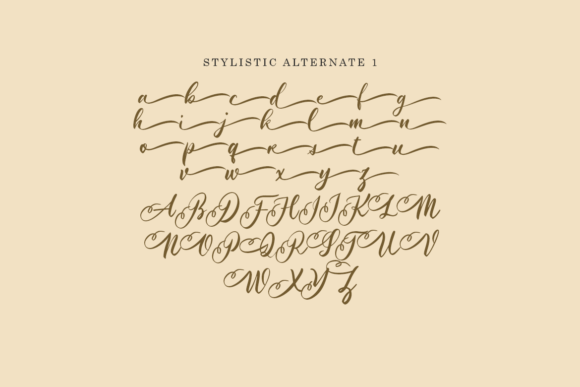 STYLISTIC ALTERNATE 1
a b c d e f g
h i j k l m n
o p q r s t u
v w x y z
A B D F H I J K L M
N O P Q R S T U V
W X Y Z